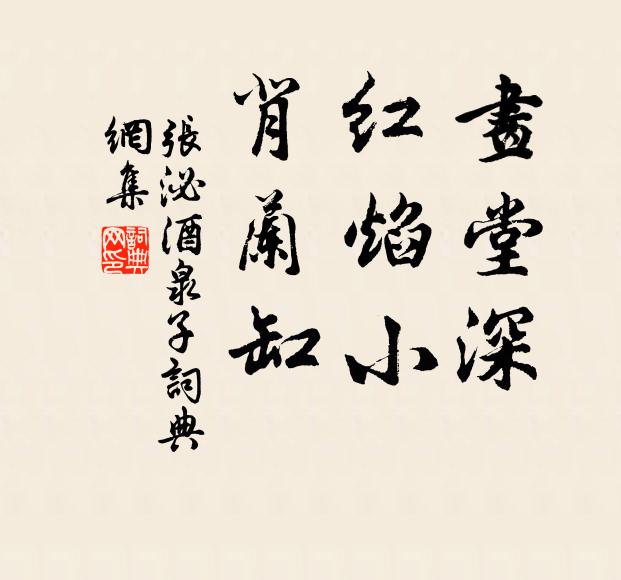 畫堂深
红焰小
背蘭缸
張泌酒泉子詞典
網集
詞典
网印